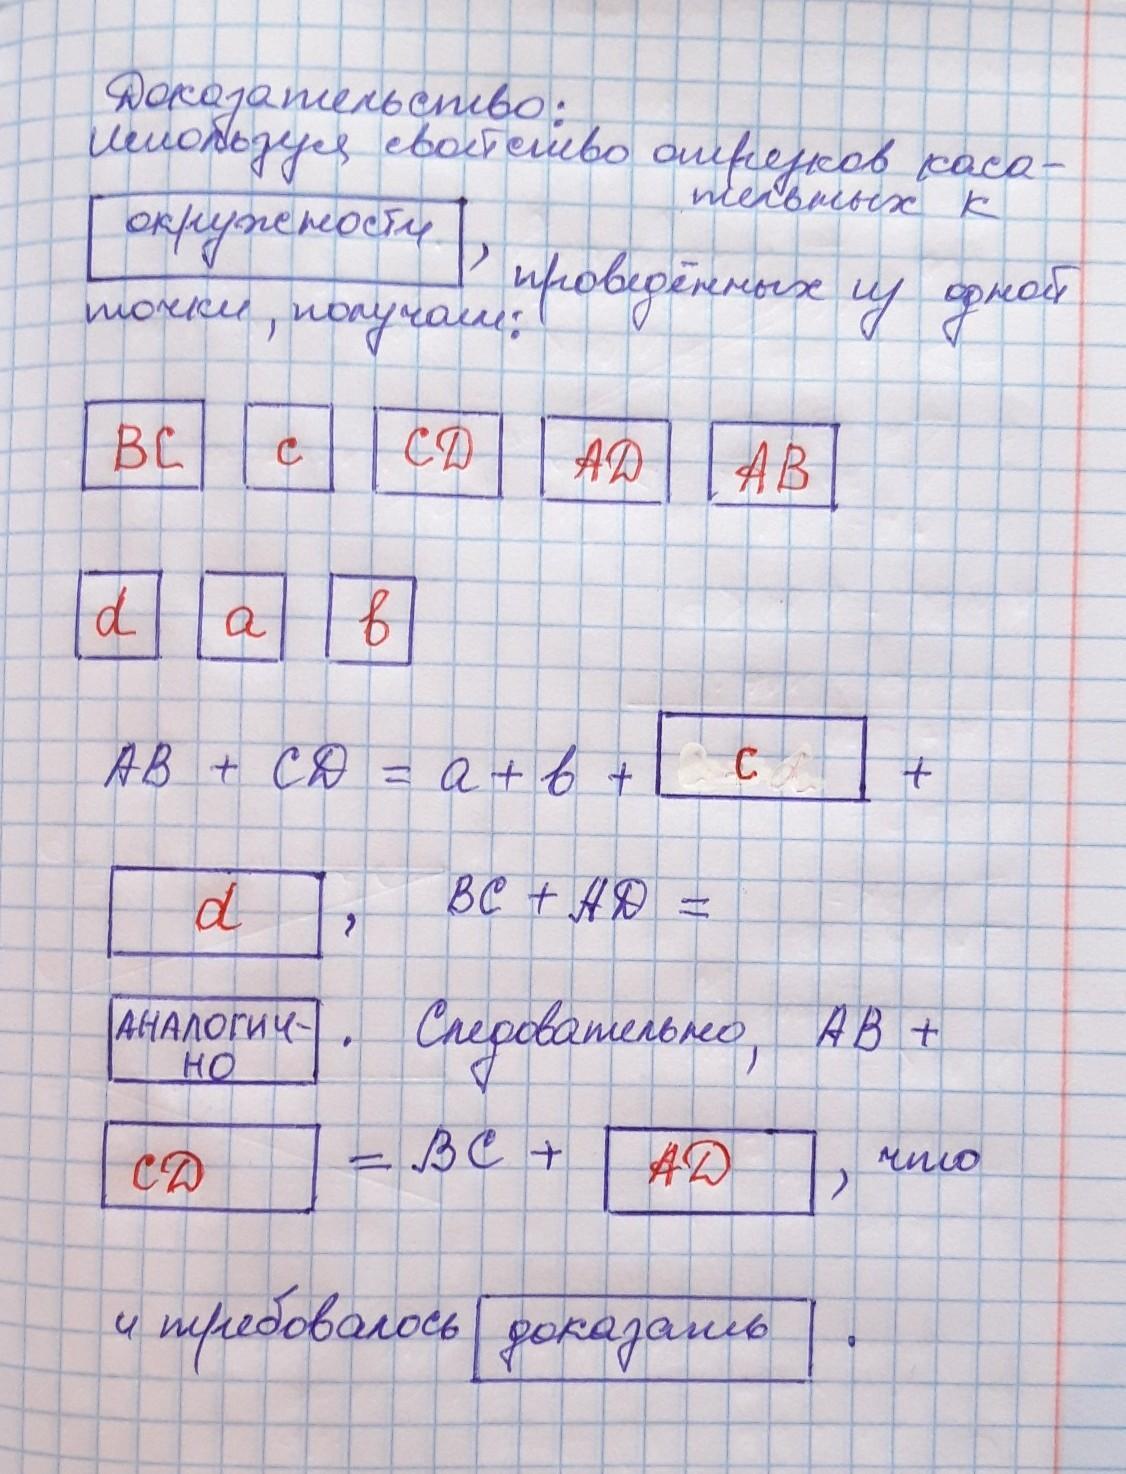 Доказательство:
Используя свойство отрезков каса-
тельных к
окружности, проведённых из одной
точки, получаем:
BC c CD AD AB
d a b
AB + CD = a + b + c +
d, BC + AD =
АНАЛОГИЧ-
НО. Следовательно, AB +
CD = BC + AD, что
и требовалось доказать.